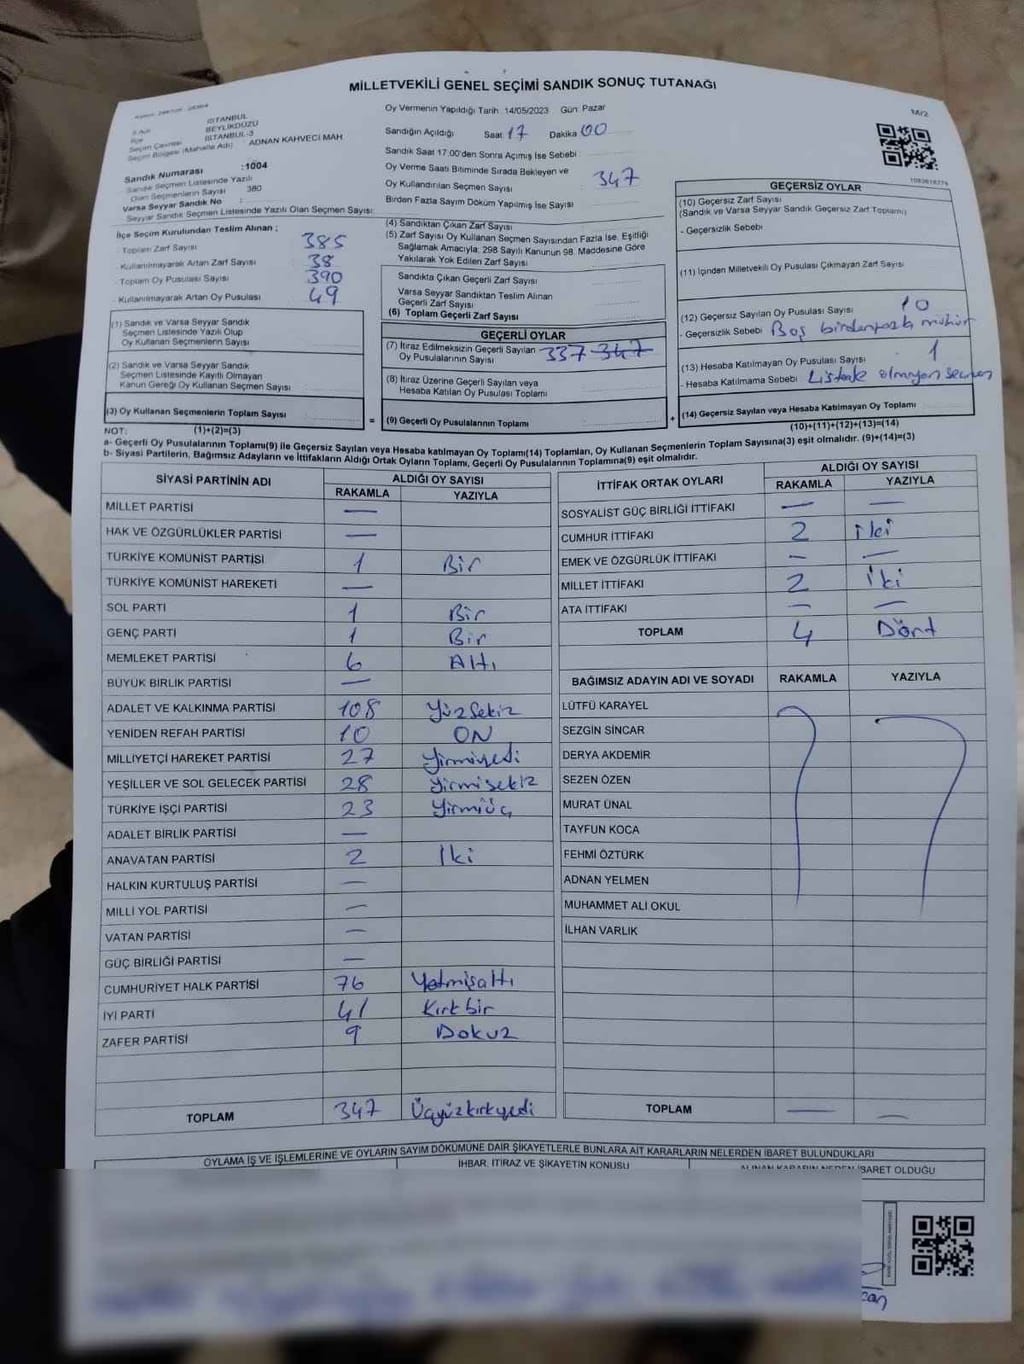 MİLLETVEKİLİ GENEL SEÇİMİ SANDIK SONUÇ TUTANAĞI
M/2
Oy Vermenin Yapıldığı Tarih: 14/05/2023 Gün: Pazar
İSTANBUL
İlçe BEYLİKDÜZÜ
Seçim Çevresi İSTANBUL-3
Seçim Bölgesi (Mahalle Adı) : ADNAN KAHVECİ MAH
Sandık Numarası :1004
Sandık Seçmen Listesinde Yazılı
Olan Seçmenlerin Sayısı : 380
Varsa Seyyar Sandık No :
Seyyar Sandık Seçmen Listesinde Yazılı Olan Seçmen Sayısı:
Sandığın Açıldığı Saat 17 Dakika 00
Sandık Saat 17:00'den Sonra Açımış İse Sebebi :
Oy Verme Saati Bitiminde Sırada Bekleyen ve
Oy Kullandırılan Seçmen Sayısı : 347
Birden Fazla Sayım Döküm Yapılmış İse Sayısı
İlçe Seçim Kurulundan Teslim Alınan ;
- Toplam Zarf Sayısı : 385
- Kullanılmayarak Artan Zarf Sayısı : 38
- Toplam Oy Pusulası Sayısı : 390
- Kullanılmayarak Artan Oy Pusulası : 49
(1) Sandık ve Varsa Seyyar Sandık
Seçmen Listesinde Yazılı Olup
Oy Kullanan Seçmenlerin Sayısı
(2) Sandık ve Varsa Seyyar Sandık
Seçmen Listesinde Kayıtlı Olmayan
Kanun Gereği Oy Kullanan Seçmen Sayısı
(3) Oy Kullanan Seçmenlerin Toplam Sayısı
(4) Sandıktan Çıkan Zarf Sayısı
(5) Zarf Sayısı Oy Kullanan Seçmen Sayısından Fazla İse, Eşitliği
Sağlamak Amacıyla; 298 Sayılı Kanunun 98. Maddesine Göre
Yakılarak Yok Edilen Zarf Sayısı
Sandıkta Çıkan Geçerli Zarf Sayısı
Varsa Seyyar Sandıktan Teslim Alınan
Geçerli Zarf Sayısı
(6) Toplam Geçerli Zarf Sayısı
GEÇERLİ OYLAR
(7) İtiraz Edilmeksizin Geçerli Sayılan
Oy Pusulalarının Sayısı : 337 347
(8) İtiraz Üzerine Geçerli Sayılan veya
Hesaba Katılan Oy Pusulası Toplamı
= (9) Geçerli Oy Pusulalarının Toplamı
1083618776
GEÇERSİZ OYLAR
(10) Geçersiz Zarf Sayısı
(Sandık ve Varsa Seyyar Sandık Geçersiz Zarf Toplamı)
- Geçersizlik Sebebi
(11) İçinden Milletvekili Oy Pusulası Çıkmayan Zarf Sayısı
(12) Geçersiz Sayılan Oy Pusulası Sayısı : 10
- Geçersizlik Sebebi : Boş birdenfazla mühür
(13) Hesaba Katılmayan Oy Pusulası Sayısı : 1
- Hesaba Katılmama Sebebi : Listede olmayan seçmen
+ (14) Geçersiz Sayılan veya Hesaba Katılmayan Oy Toplamı
NOT: (1)+(2)=(3) (10)+(11)+(12)+(13)=(14)
a- Geçerli Oy Pusulalarının Toplamı(9) ile Geçersiz Sayılan veya Hesaba katılmayan Oy Toplamı(14) Toplamları, Oy Kullanan Seçmenlerin Toplam Sayısına(3) eşit olmalıdır. (9)+(14)=(3)
b- Siyasi Partilerin, Bağımsız Adayların ve İttifakların Aldığı Ortak Oyların Toplamı, Geçerli Oy Pusulalarının Toplamına(9) eşit olmalıdır.
SİYASİ PARTİNİN ADI ALDIĞI OY SAYISI
RAKAMLA YAZIYLA
MİLLET PARTİSİ —
HAK VE ÖZGÜRLÜKLER PARTİSİ —
TÜRKİYE KOMÜNİST PARTİSİ 1 Bir
TÜRKİYE KOMÜNİST HAREKETİ —
SOL PARTİ 1 Bir
GENÇ PARTİ 1 Bir
MEMLEKET PARTİSİ 6 Altı
BÜYÜK BİRLİK PARTİSİ —
ADALET VE KALKINMA PARTİSİ 108 Yüzsekiz
YENİDEN REFAH PARTİSİ 10 ON
MİLLİYETÇİ HAREKET PARTİSİ 27 Yirmiyedi
YEŞİLLER VE SOL GELECEK PARTİSİ 28 Yirmisekiz
TÜRKİYE İŞÇİ PARTİSİ 23 Yirmiüç
ADALET BİRLİK PARTİSİ —
ANAVATAN PARTİSİ 2 İki
HALKIN KURTULUŞ PARTİSİ —
MİLLİ YOL PARTİSİ —
VATAN PARTİSİ —
GÜÇ BİRLİĞİ PARTİSİ —
CUMHURİYET HALK PARTİSİ 76 Yetmişaltı
İYİ PARTİ 41 Kırkbir
ZAFER PARTİSİ 9 Dokuz
TOPLAM 347 Üçyüzkırkyedi
İTTİFAK ORTAK OYLARI ALDIĞI OY SAYISI
RAKAMLA YAZIYLA
SOSYALİST GÜÇ BİRLİĞİ İTTİFAKI — —
CUMHUR İTTİFAKI 2 iki
EMEK VE ÖZGÜRLÜK İTTİFAKI — —
MİLLET İTTİFAKI 2 İki
ATA İTTİFAKI — —
TOPLAM 4 Dört
BAĞIMSIZ ADAYIN ADI VE SOYADI RAKAMLA YAZIYLA
LÜTFÜ KARAYEL
SEZGİN SİNCAR
DERYA AKDEMİR
SEZEN ÖZEN
MURAT ÜNAL
TAYFUN KOCA
FEHMİ ÖZTÜRK
ADNAN YELMEN
MUHAMMET ALİ OKUL
İLHAN VARLIK
TOPLAM — —
OYLAMA İŞ VE İŞLEMLERİNE VE OYLARIN SAYIM DÖKÜMÜNE DAİR ŞİKAYETLERLE BUNLARA AİT KARARLARIN NELERDEN İBARET BULUNDUKLARI
İHBAR, İTİRAZ VE ŞİKAYETİN KONUSU ALINAN KARARIN NEDEN İBARET OLDUĞU